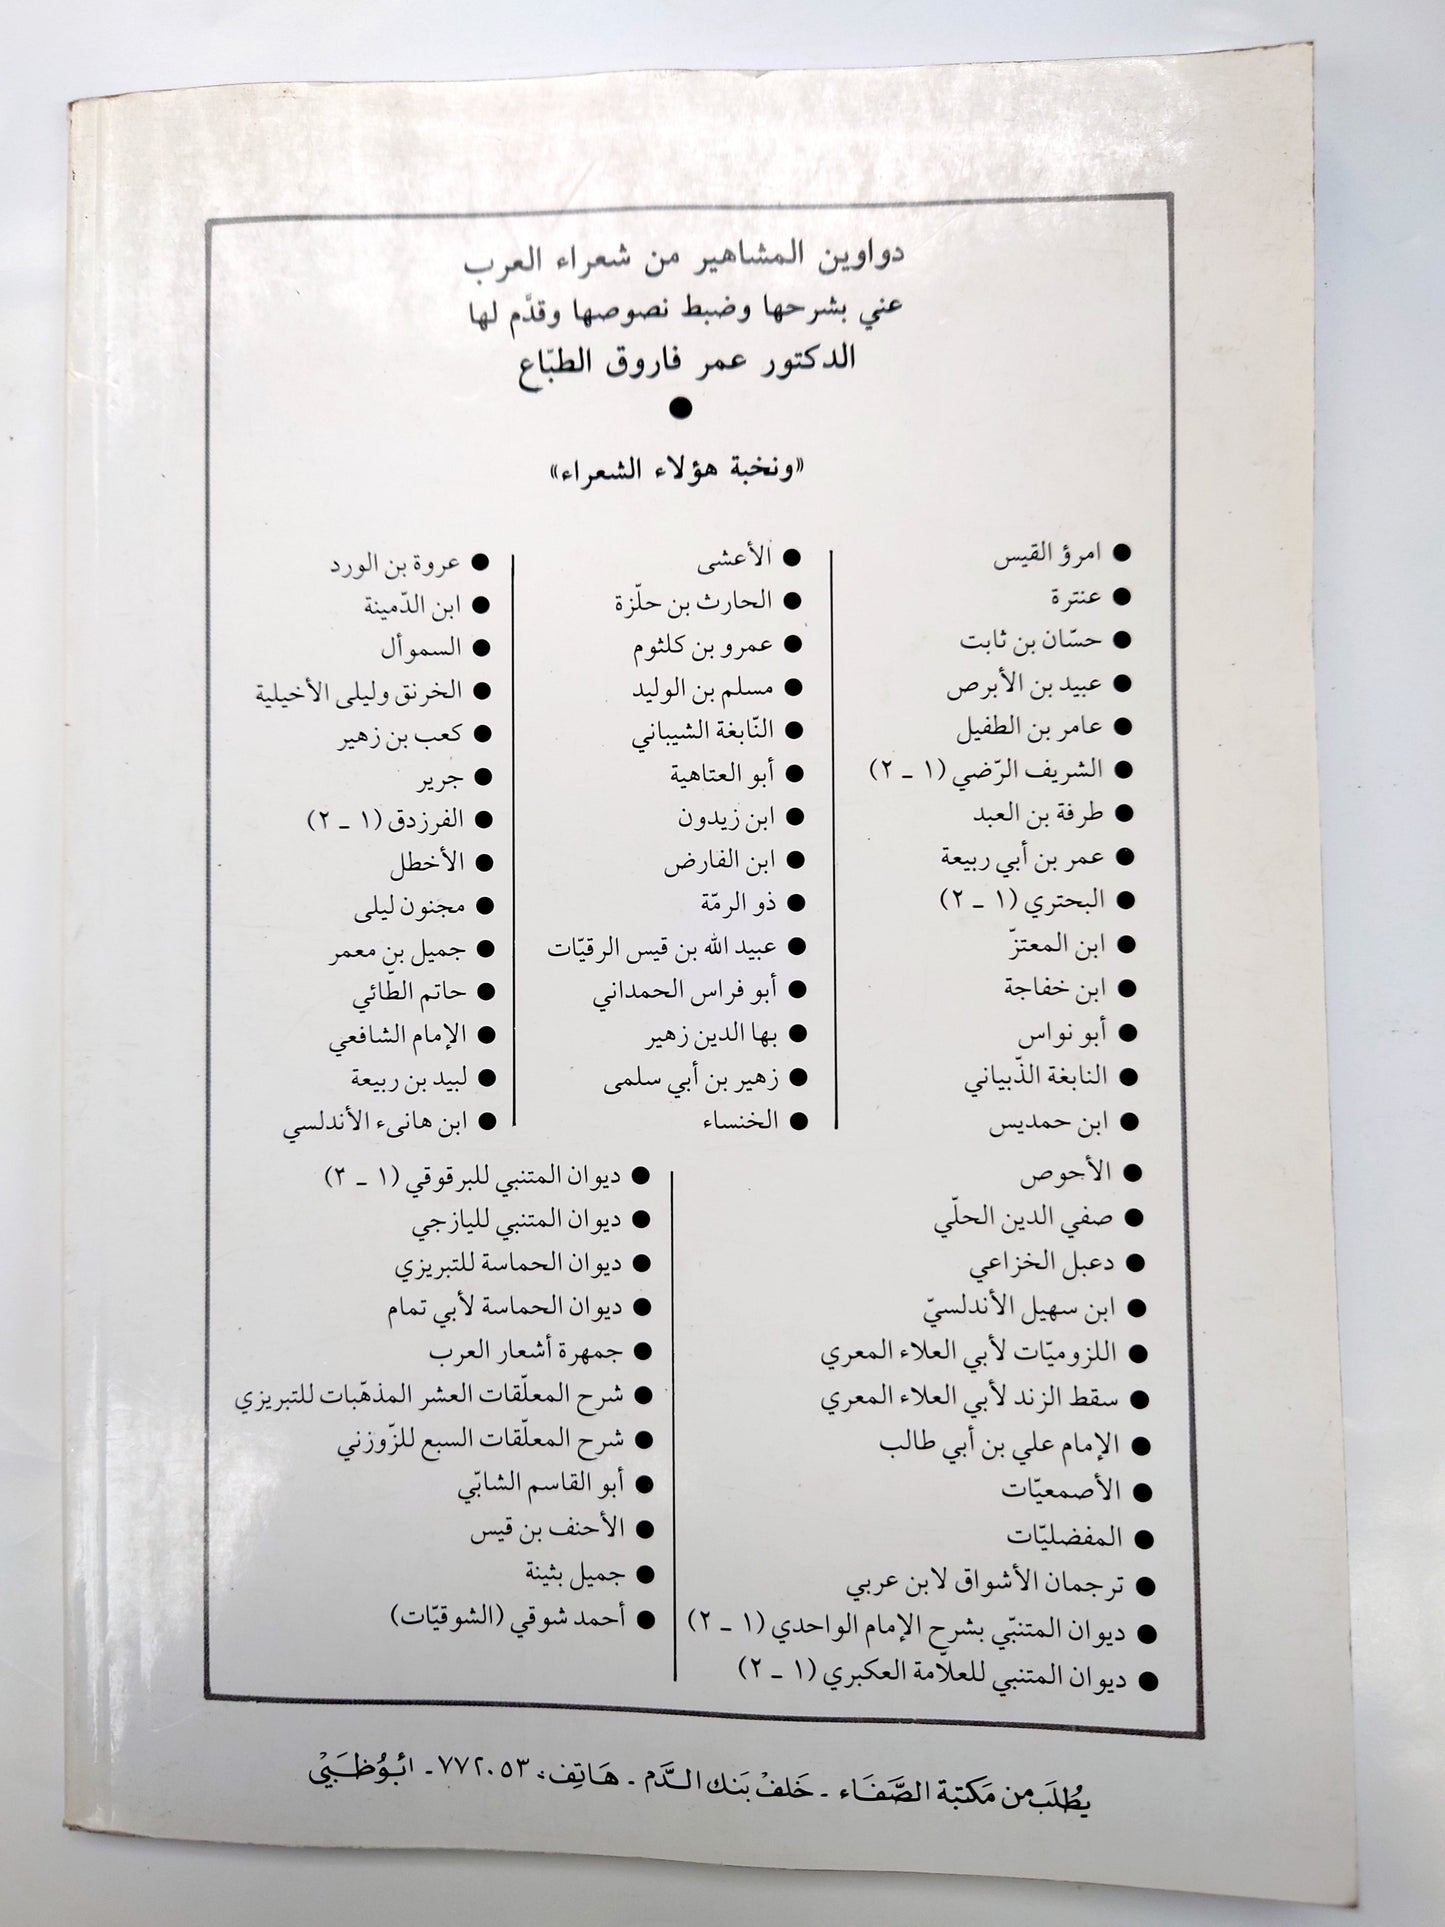 دواوين المشاهير من شعراء العرب
عني بشرحها وضبط نصوصها وقدّم لها
الدكتور عمر فاروق الطبّاع
●
«ونخبة هؤلاء الشعراء»
● امرؤ القيس
● عنترة
● حسّان بن ثابت
● عبيد بن الأبرص
● عامر بن الطفيل
● الشريف الرّضي (١ ـ ٢)
● طرفة بن العبد
● عمر بن أبي ربيعة
● البحتري (١ ـ ٢)
● ابن المعتزّ
● ابن خفاجة
● أبو نواس
● النابغة الذّبياني
● ابن حمديس
● الأعشى
● الحارث بن حلّزة
● عمرو بن كلثوم
● مسلم بن الوليد
● النّابغة الشيباني
● أبو العتاهية
● ابن زيدون
● ابن الفارض
● ذو الرمّة
● عبيد الله بن قيس الرقيّات
● أبو فراس الحمداني
● بها الدين زهير
● زهير بن أبي سلمى
● الخنساء
● عروة بن الورد
● ابن الدّمينة
● السموأل
● الخرنق وليلى الأخيلية
● كعب بن زهير
● جرير
● الفرزدق (١ ـ ٢)
● الأخطل
● مجنون ليلى
● جميل بن معمر
● حاتم الطّائي
● الإمام الشافعي
● لبيد بن ربيعة
● ابن هانىء الأندلسي
● الأحوص
● صفي الدين الحلّي
● دعبل الخزاعي
● ابن سهيل الأندلسيّ
● اللزوميّات لأبي العلاء المعري
● سقط الزند لأبي العلاء المعري
● الإمام علي بن أبي طالب
● الأصمعيّات
● المفضليّات
● ترجمان الأشواق لابن عربي
● ديوان المتنبّي بشرح الإمام الواحدي (١ ـ ٢)
● ديوان المتنبي للعلاّمة العكبري (١ ـ ٢)
● ديوان المتنبي للبرقوقي (١ ـ ٢)
● ديوان المتنبي لليازجي
● ديوان الحماسة للتبريزي
● ديوان الحماسة لأبي تمام
● جمهرة أشعار العرب
● شرح المعلّقات العشر المذهّبات للتبريزي
● شرح المعلّقات السبع للزّوزني
● أبو القاسم الشابّي
● الأحنف بن قيس
● جميل بثينة
● أحمد شوقي (الشوقيّات)
يُطلَب من مَكتبة الصَّفَاء ـ خَلفْ بَنك الدَّم ـ هَاتِف: ٧٧٢٠٥٣ ـ أبُوظَبَيْ